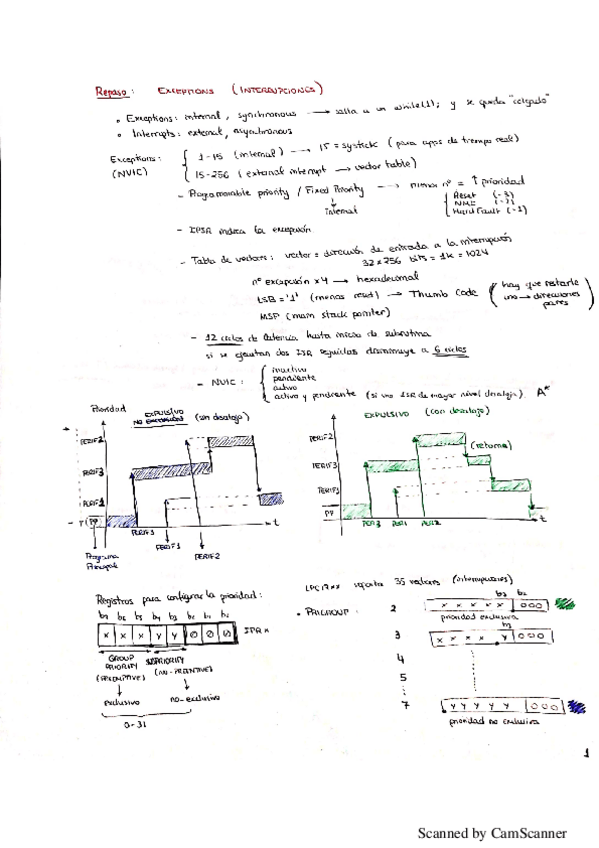 Repaso: EXCEPTIONS (INTERRUPCIONES)
• Exceptions: internal, synchronous → salta a un while(1); y se queda "colgado"
• Interrupts: external, asynchronous
Exceptions: (NVIC)
1-15 (internal) → 15 = systick (para apps de tiempo real)
15-256 (external interrupt → vector table)
- Programable priority / Fixed Priority → menor nº = ↑ prioridad
Internal
Reset (-3)
NMI (-2)
Hard Fault (-1)
- IPSR indica la excepción
- Tabla de vectores: vector = dirección de entrada a la interrupción
32 x 256 bits = 1k = 1024
nº excepción x4 → hexadecimal
LSB = '1' (menos reset) → Thumb Code (hay que restarle uno → direcciones pares)
MSP (main stack pointer)
- 12 ciclos de latencia hasta inicio de subrutina
si se ejecutan dos ISR seguidas disminuye a 6 ciclos
- NVIC:
inactivo
pendiente
activo
activo y pendiente (si una ISR de mayor nivel desaloja) A*
Prioridad
EXPULSIVO
(sin desalojo)
PERIF2
PERIF3
PERIF1
PP
PERIF3
PERIF1
PERIF2
t
Programa Principal
EXPULSIVO (con desalojo)
PERIF2
(retorna)
PERIF3
PERIF1
PP
PER3 PER1 PER2
t
Registros para configurar la prioridad:
b7 b6 b5 b4 b3 b2 b1 b0
x x x y y 0 0 0 IPRx
GROUP PRIORITY (PREEMPTIVE)
SUBPRIORITY (NON-PREEMPTIVE)
exclusivo
no-exclusivo
0-31
LPC17xx soporta 35 vectores (interrupciones)
• PRIGROUP:
b3 b2
2 x x x x x 000
prioridad exclusiva
b3
3 x x x x y 000
4
5
7 y y y y y 000
prioridad no exclusiva
1
Scanned by CamScanner